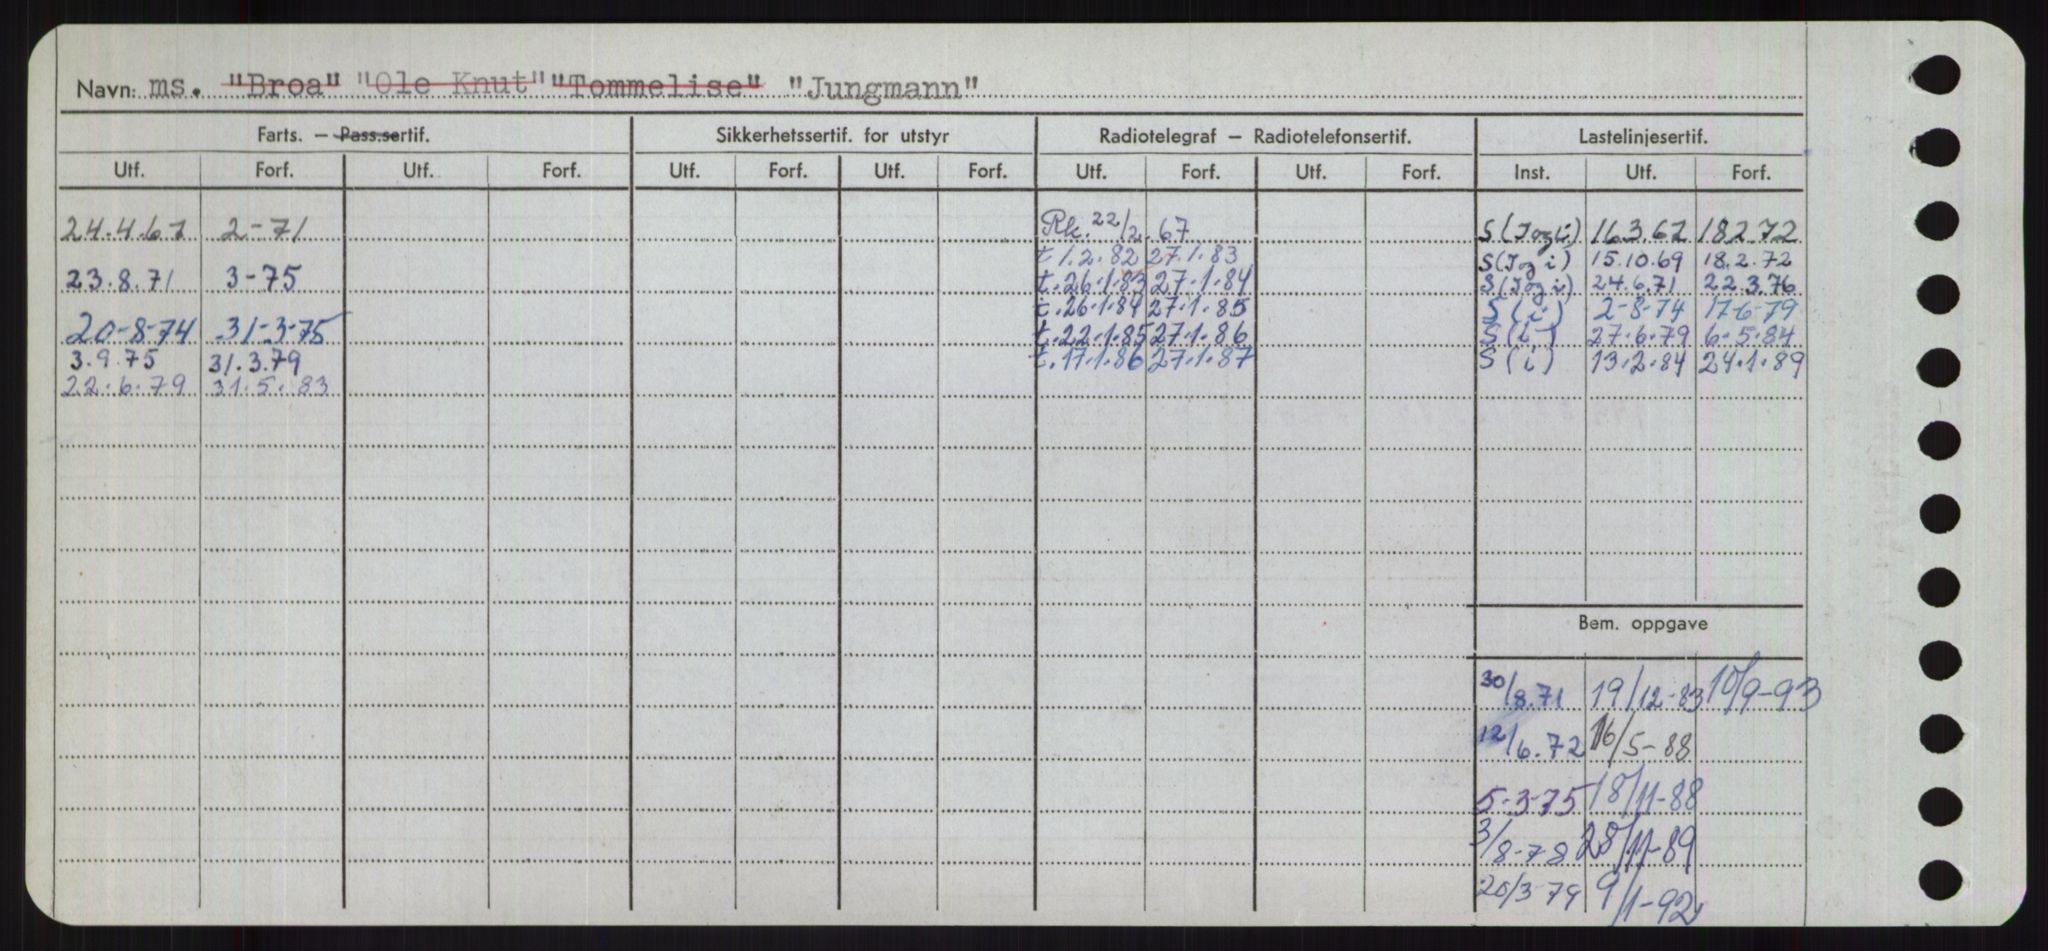 Navn: ms. "Broa" "Ole Knut" "Tommelise" "Jungmann"
Farts. – Pass.sertif. Sikkerhetssertif. for utstyr Radiotelegraf – Radiotelefonsertif. Lastelinjesertif.
Utf. Forf. Utf. Forf. Utf. Forf. Utf. Forf. Utf. Forf. Utf. Forf. Inst. Utf. Forf.
24.4.67 2-71 Rk. 22/2.67 S (Tog i) 16.3.67 18.2.72
t 1.2.82 27.1.83 S (Tog i) 15.10.69 18.2.72
23.8.71 3-75 t.26.1.83 27.1.84 S (Tog i) 24.6.71 22.3.76
t.26.1.84 27.1.85 S (i) 2-8-74 17-6-79
20-8-74 31-3-75 t.22.1.85 27.1.86 S (i) 27.6.79 6.5.84
3.9.75 31.3.79 t.17.1.86 27.1.87 S (i) 13.2.84 24.1.89
22.6.79 31.5.83
Bem. oppgave
30/8.71 19/12-83 10/9-93
12/6.72 16/5-88
5-3-75 18/11-88
3/8-78 28/11-89
20/3-79 9/1-92